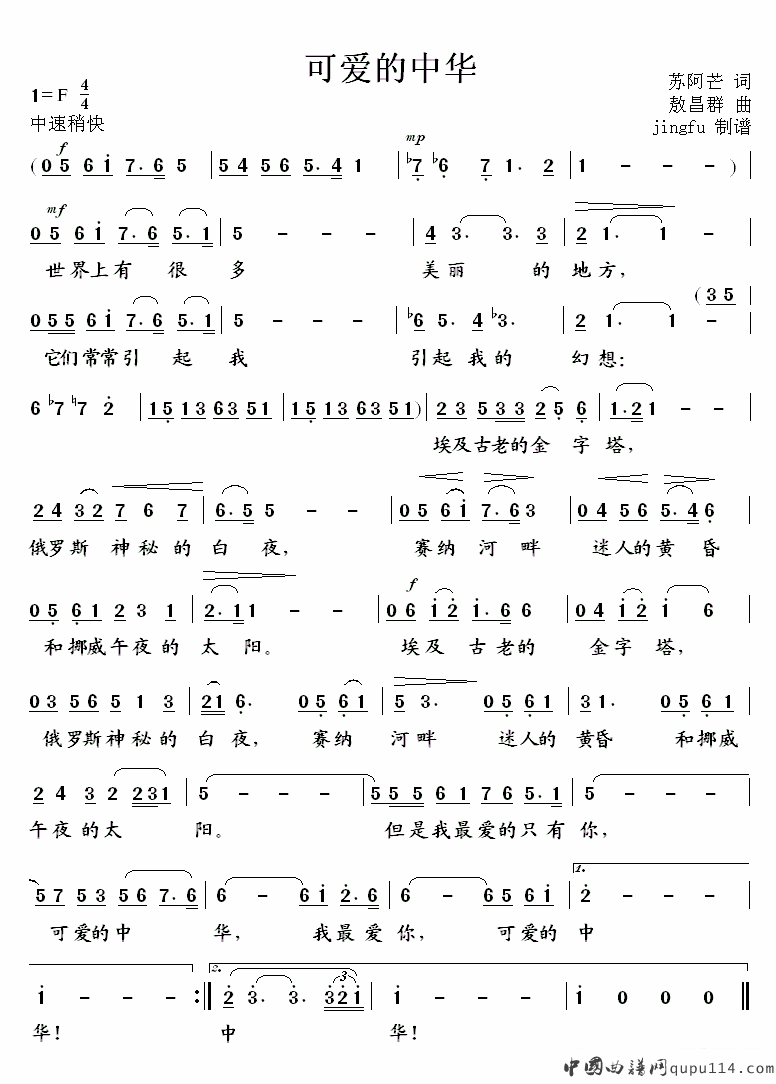 可爱的中华
1=F 4/4
中速稍快
苏阿芒 词
敖昌群 曲
jingfu 制谱
f
mp
(0 5 6 1 7· 6 5 | 5 4 5 6 5· 4 1 | ♭7 ♭6 7 1· 2 | 1 - - - )
mf
0 5 6 1 7· 6 5· 1 | 5 - - - | 4 3· 3· 3 | 2 1· 1 - |
世界上有 很 多 美丽 的 地方,
(3 5
0 5 5 6 1 7· 6 5· 1 | 5 - - - | ♭6 5· 4 ♭3· | 2 1· 1 - |
它们常常引 起 我 引起 我的 幻想:
6 ♭7 ♮7 2 | 1 5 1 3 6 3 5 1 | 1 5 1 3 6 3 5 1) | 2 3 5 3 3 2 5 6 | 1· 2 1 - - |
埃及古老的金 字 塔,
2 4 3 2 7 6 7 | 6· 5 5 - - | 0 5 6 1 7· 6 3 | 0 4 5 6 5· 4 6 |
俄罗斯 神秘 的 白 夜, 赛纳 河 畔 迷人的黄 昏
f
0 5 6 1 2 3 1 | 2· 1 1 - - | 0 6 1 2 1· 5 6 | 0 4 1 2 1 6 |
和挪威午夜 的 太 阳。 埃及 古 老的 金字 塔,
0 3 5 6 5 1 3 | 2 1 6· 0 5 6 1 | 5 3· 0 5 6 1 | 3 1· 0 5 6 1 |
俄罗斯神秘 的 白夜, 赛纳 河畔 迷人的 黄昏 和挪威
2 4 3 2 2 3 1 | 5 - - - | 5 5 5 6 1 7 6 5· 1 | 5 - - - |
午夜 的太 阳。 但是我最爱的只有 你,
1.
5 7 5 3 5 6 7· 6 | 6 - 6 1 2· 6 | 6 - 6 5 6 1 | 2 - - |
可爱的中 华, 我最 爱 你, 可爱的 中
2.
3
1 - - - :| 2 3· 3· 3 2 1 | 1 - - - | 1 0 0 0 ‖
华! 中 华!
中国曲谱网qupu114.com